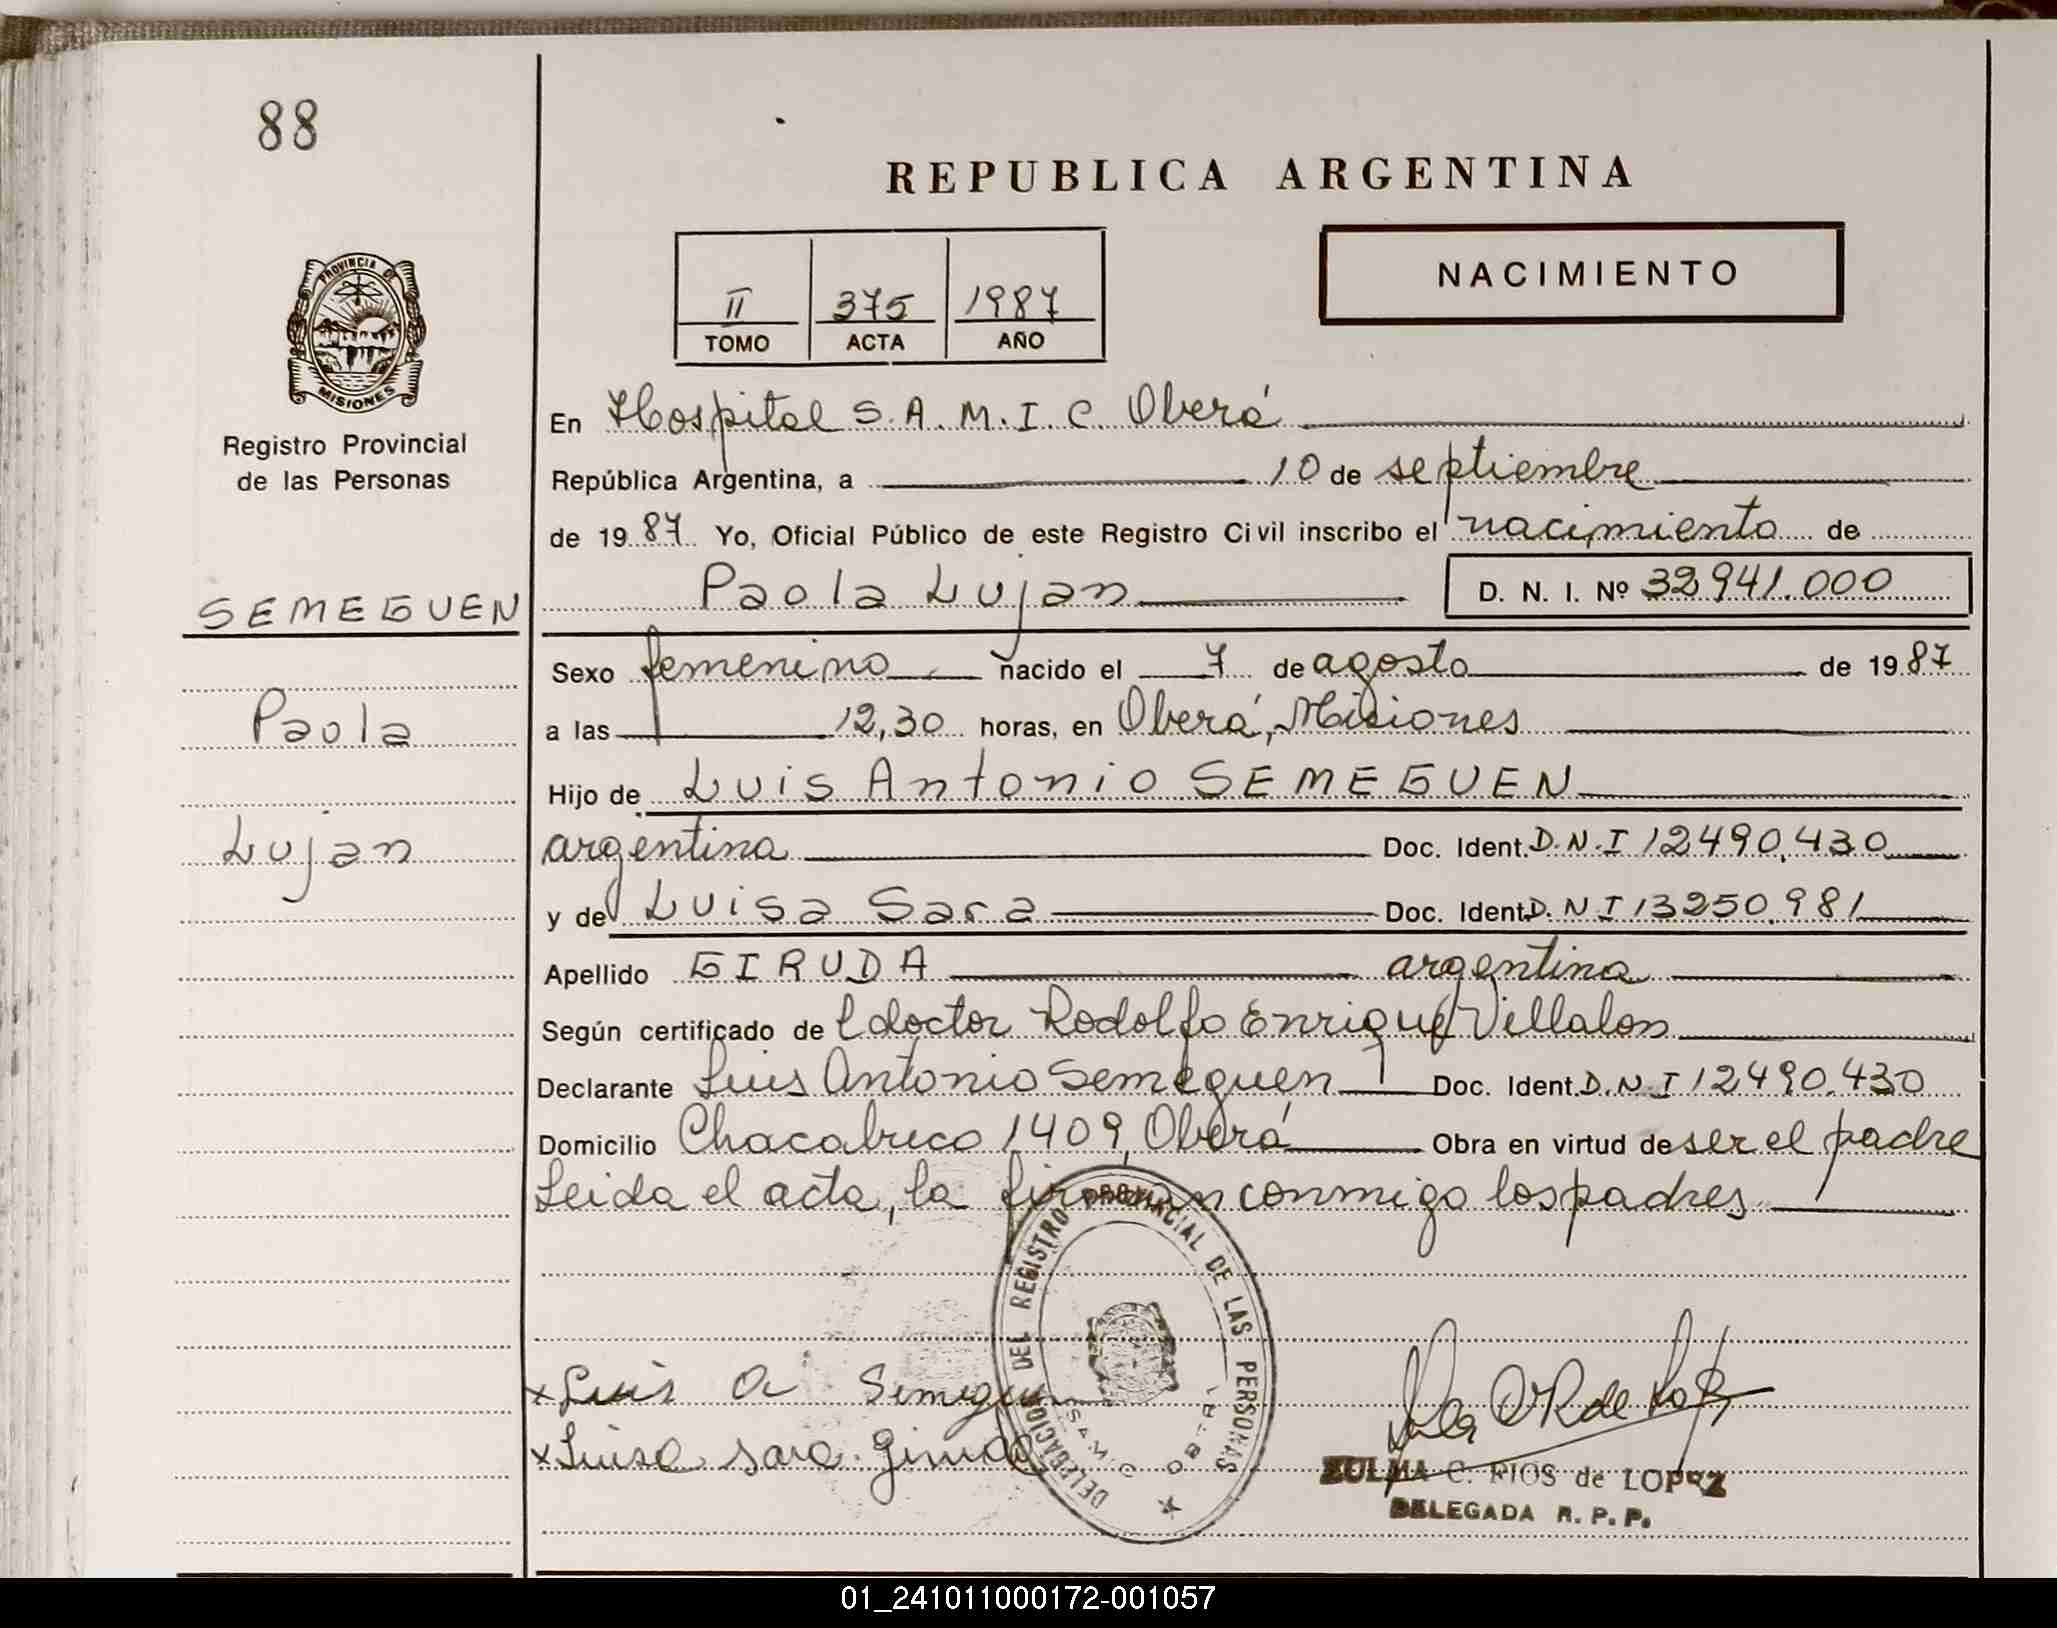 88
REPUBLICA ARGENTINA
NACIMIENTO
II 375 1987
TOMO ACTA AÑO
PROVINCIA DE
MISIONES
Registro Provincial
de las Personas
En Hospital S.A.M.I.C. Oberá
República Argentina, a 10 de septiembre
de 1987 Yo, Oficial Público de este Registro Civil inscribo el nacimiento de
Paola Lujan D. N. I. Nº 32941.000
SEMEGUEN
Paola
Lujan
Sexo femenino nacido el 7 de agosto de 1987
a las 12,30 horas, en Oberá, Misiones
Hijo de Luis Antonio SEMEGUEN
argentina Doc. Ident. D.N.I 12490.430
y de Luisa Sara Doc. Ident. D.N I 13250.981
Apellido GIRUDA argentina
Según certificado de l doctor Rodolfo Enrique Villalon
Declarante Luis Antonio Semeguen Doc. Ident. D.N.I 12490.430
Domicilio Chacabuco 1409, Oberá Obra en virtud de ser el padre
Leida el acta, la firman conmigo los padres
DELEGACION DEL REGISTRO PROVINCIAL DE LAS PERSONAS
x Luis A Semeguen
x Luisa Sara Giruda
ZULMA C. RIOS de LOPEZ
DELEGADA R. P. P.
01_241011000172-001057